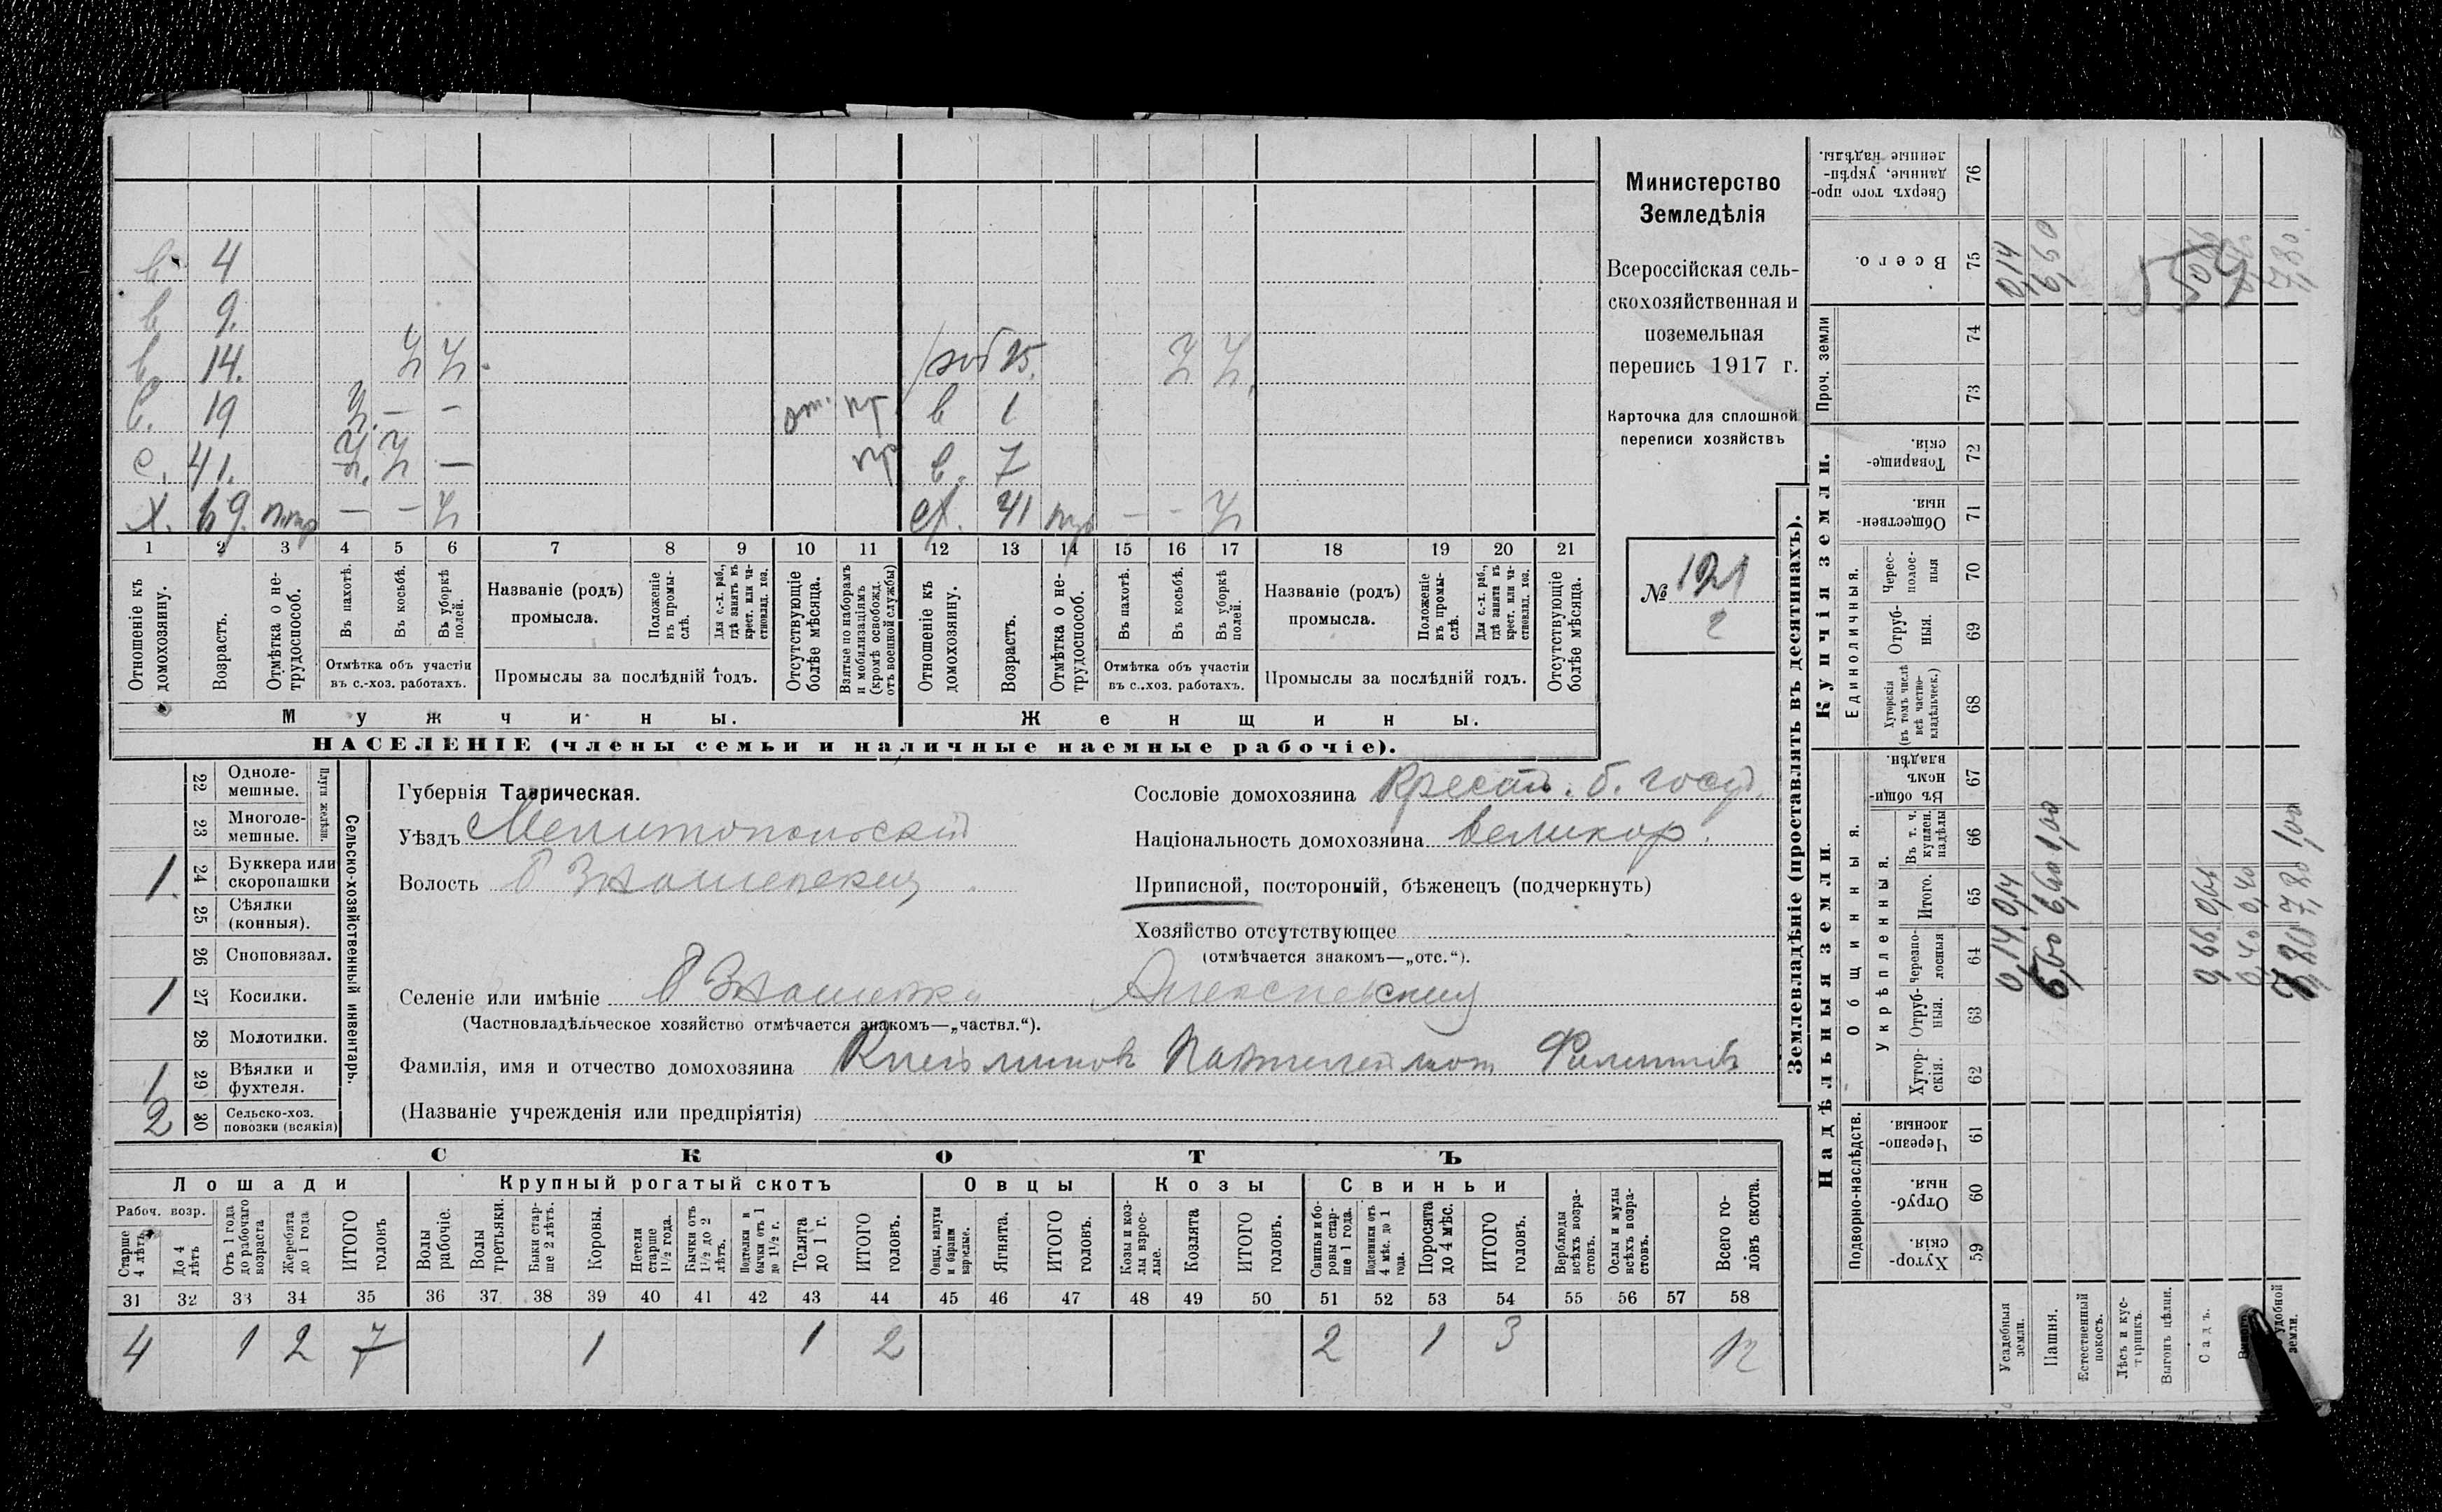 в. 4
в 9.
в 14. Ч Ч
в. 19 Ч. — — от. пр
с. 41. Ч Ч — пр
Х. 69. — — Ч
1 2 3 4 5 6 7 8 9 10 11
Отношеніе къ домохозяину.
Возрастъ.
Отмѣтка о не-
трудоспособ.
Въ пахотѣ.
Въ косьбѣ.
Въ уборкѣ
полей.
Отмѣтка объ участіи
въ с.-хоз. работахъ.
Названіе (родъ)
промысла.
Положеніе
въ промы-
слѣ.
Для с.-х. раб.,
гдѣ занятъ въ
крест. или ча-
стновлад. хоз.
Промыслы за послѣдній годъ.
Отсутствующіе
болѣе мѣсяца.
Взятые по наборамъ
и мобилизаціямъ
(кромѣ освобожд.
отъ военной службы)
Мужчины.
25. Ч Ч.
в 1
в. 7
71 — — Ч
12 13 14 15 16 17 18 19 20 21
Отношеніе къ
домохозяину.
Возрастъ.
Отмѣтка о не-
трудоспособ.
Въ пахотѣ.
Въ косьбѣ.
Въ уборкѣ
полей.
Отмѣтка объ участіи
въ с.-хоз. работахъ.
Названіе (родъ)
промысла.
Положеніе
въ промы-
слѣ.
Для с.-х. раб.,
гдѣ занята въ
крест. или ча-
стновлад. хоз.
Промыслы за послѣдній годъ.
Отсутствующіе
болѣе мѣсяца.
Женщины.
НАСЕЛЕНІЕ (члены семьи и наличные наемные рабочіе).
Министерство
Земледѣлія
Всероссійская сель-
скохозяйственная и
поземельная
перепись 1917 г.
Карточка для сплошной
переписи хозяйствъ
№ 121
2
22 Одноле-
мешные.
23 Многоле-
мешные.
Плуги желѣзн.
1. 24 Буккера или
скоропашки
25 Сѣялки
(конныя).
26 Сноповязал.
1 27 Косилки.
28 Молотилки.
1 29 Вѣялки и
фухтеля.
2 30 Сельско-хоз.
повозки (всякія)
Сельско-хозяйственный инвентарь.
Губернія Таврическая.
Уѣздъ Мелитопольскій
Волость Б Знаменская
Селеніе или имѣніе Б Знаменка Алексѣевская
(Частновладѣльческое хозяйство отмѣчается знакомъ—„частвл.“).
Фамилія, имя и отчество домохозяина Филиппов
(Названіе учрежденія или предпріятія)
Сословіе домохозяина Крестьян. б. госуд.
Національность домохозяина Великор.
Приписной, посторонній, бѣженецъ (подчеркнуть)
Хозяйство отсутствующее
(отмѣчается знакомъ—„отс.“).
СКОТЪ
Лошади
Рабоч. возр.
Старше
4 лѣтъ.
До 4
лѣтъ
Отъ 1 года
до рабочаго
возраста
Жеребята
до 1 года
ИТОГО
головъ
Крупный рогатый скотъ
Волы
рабочіе.
Волы
третьяки.
Быки стар-
ше 2 лѣтъ.
Коровы.
Нетели
старше
1½ года.
Бычки отъ
1½ до 2
лѣтъ.
Подтелки и
бычки отъ 1
до 1½ г.
Телята
до 1 г.
ИТОГО
головъ.
Овцы
Овцы, валухи
и бараны
взрослые.
Ягнята.
ИТОГО
головъ.
Козы
Козы и коз-
лы взрос-
лые.
Козлята
ИТОГО
головъ.
Свиньи
Свиньи и бо-
ровы стар-
ше 1 года.
Подсвинки отъ
4 мѣс. до 1
года.
Поросята
до 4 мѣс.
ИТОГО
головъ.
Верблюды
всѣхъ возра-
стовъ.
Ослы и мулы
всѣхъ возра-
стовъ.
Всего го-
ловъ скота.
31 32 33 34 35 36 37 38 39 40 41 42 43 44 45 46 47 48 49 50 51 52 53 54 55 56 57 58
4 1 2 7 1 1 2 2 1 3 12
Землевладѣніе (проставлять въ десятинахъ).
Надѣльныя земли.
Купчія земли.
Проч. земли
Подворно-наслѣдств.
Общинныя.
Укрѣпленныя.
Единоличныя.
Хутор-
скія.
59
Отруб-
ныя.
60
Черезпо-
лосныя.
61
Хутор-
скія.
62
Отруб-
ныя.
63
Черезпо-
лосныя
64
Итого.
65
Въ т. ч.
куплен.
надѣлы
66
Въ общи-
номъ
владѣн.
67
Хуторскія
(въ томъ числѣ
всѣ частно-
владѣльческ.)
68
Отруб-
ныя.
69
Черес-
полос-
ныя
70
Обществен-
ныя.
71
Товарище-
скія.
72
73
74
Всего.
75
Сверхъ того про-
данные, укрѣп-
ленные надѣлы.
76
Усадебныя
земли.
0,14 0,14 0,14
Пашня.
6,60 6,60 1,00 6,60
Естественный
покосъ.
Лѣсъ и кус-
тарникъ.
Выгонъ цѣлин.
Садъ.
0,66 0,66
0,40 0,40
удобной
земли.
7,80 7,80 1,00 7,80.